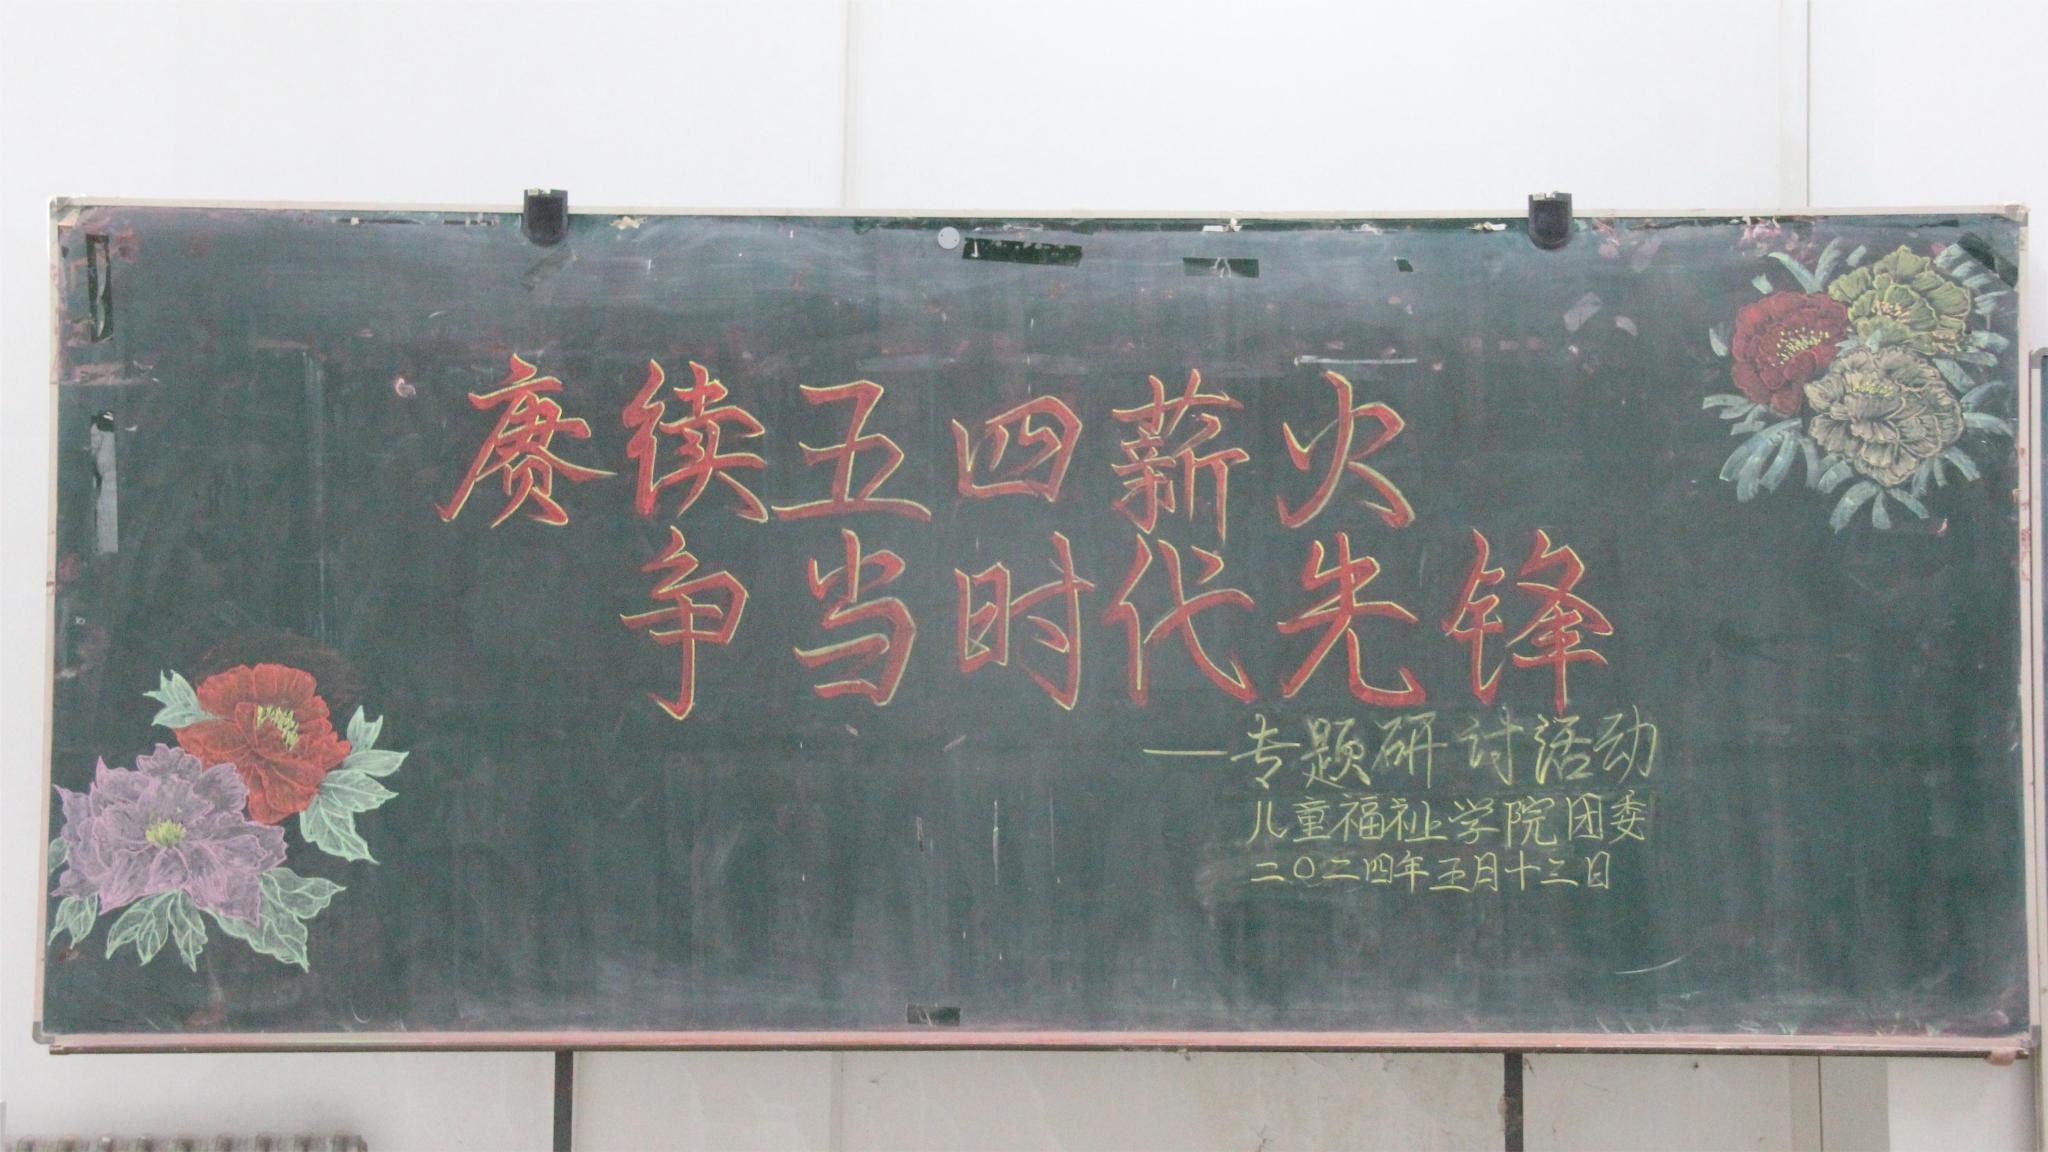 赓续五四薪火
争当时代先锋
—专题研讨活动
儿童福祉学院团委
二〇二四年五月十三日